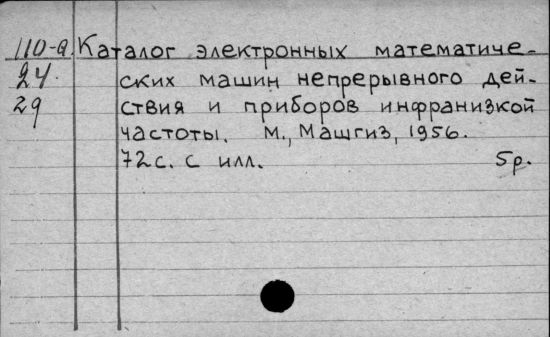 110-а. Каталог электронных математиче-
24. ских машин непрерывного дей-
29 ствия и приборов инфранизкой
частоты. М., Машгиз, 1956.
72 с. с илл. 5р.